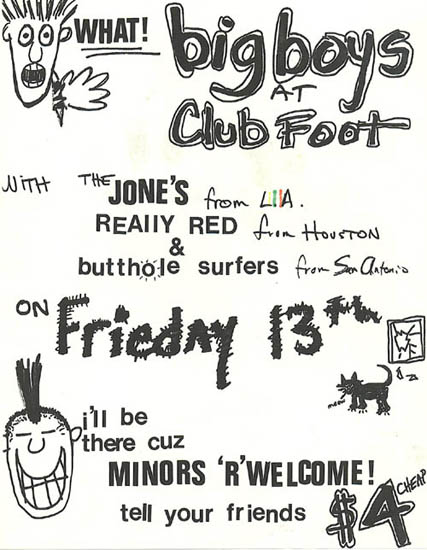 WHAT!
big boys
AT
Club Foot
WITH THE JONE'S from LIIA.
REAlly RED from HOUSTON
&
butthole surfers from San Antonio
ON Frieday 13th
meow
i'll be
there cuz
MINORS 'R' WELCOME!
tell your friends
$4 CHEAP